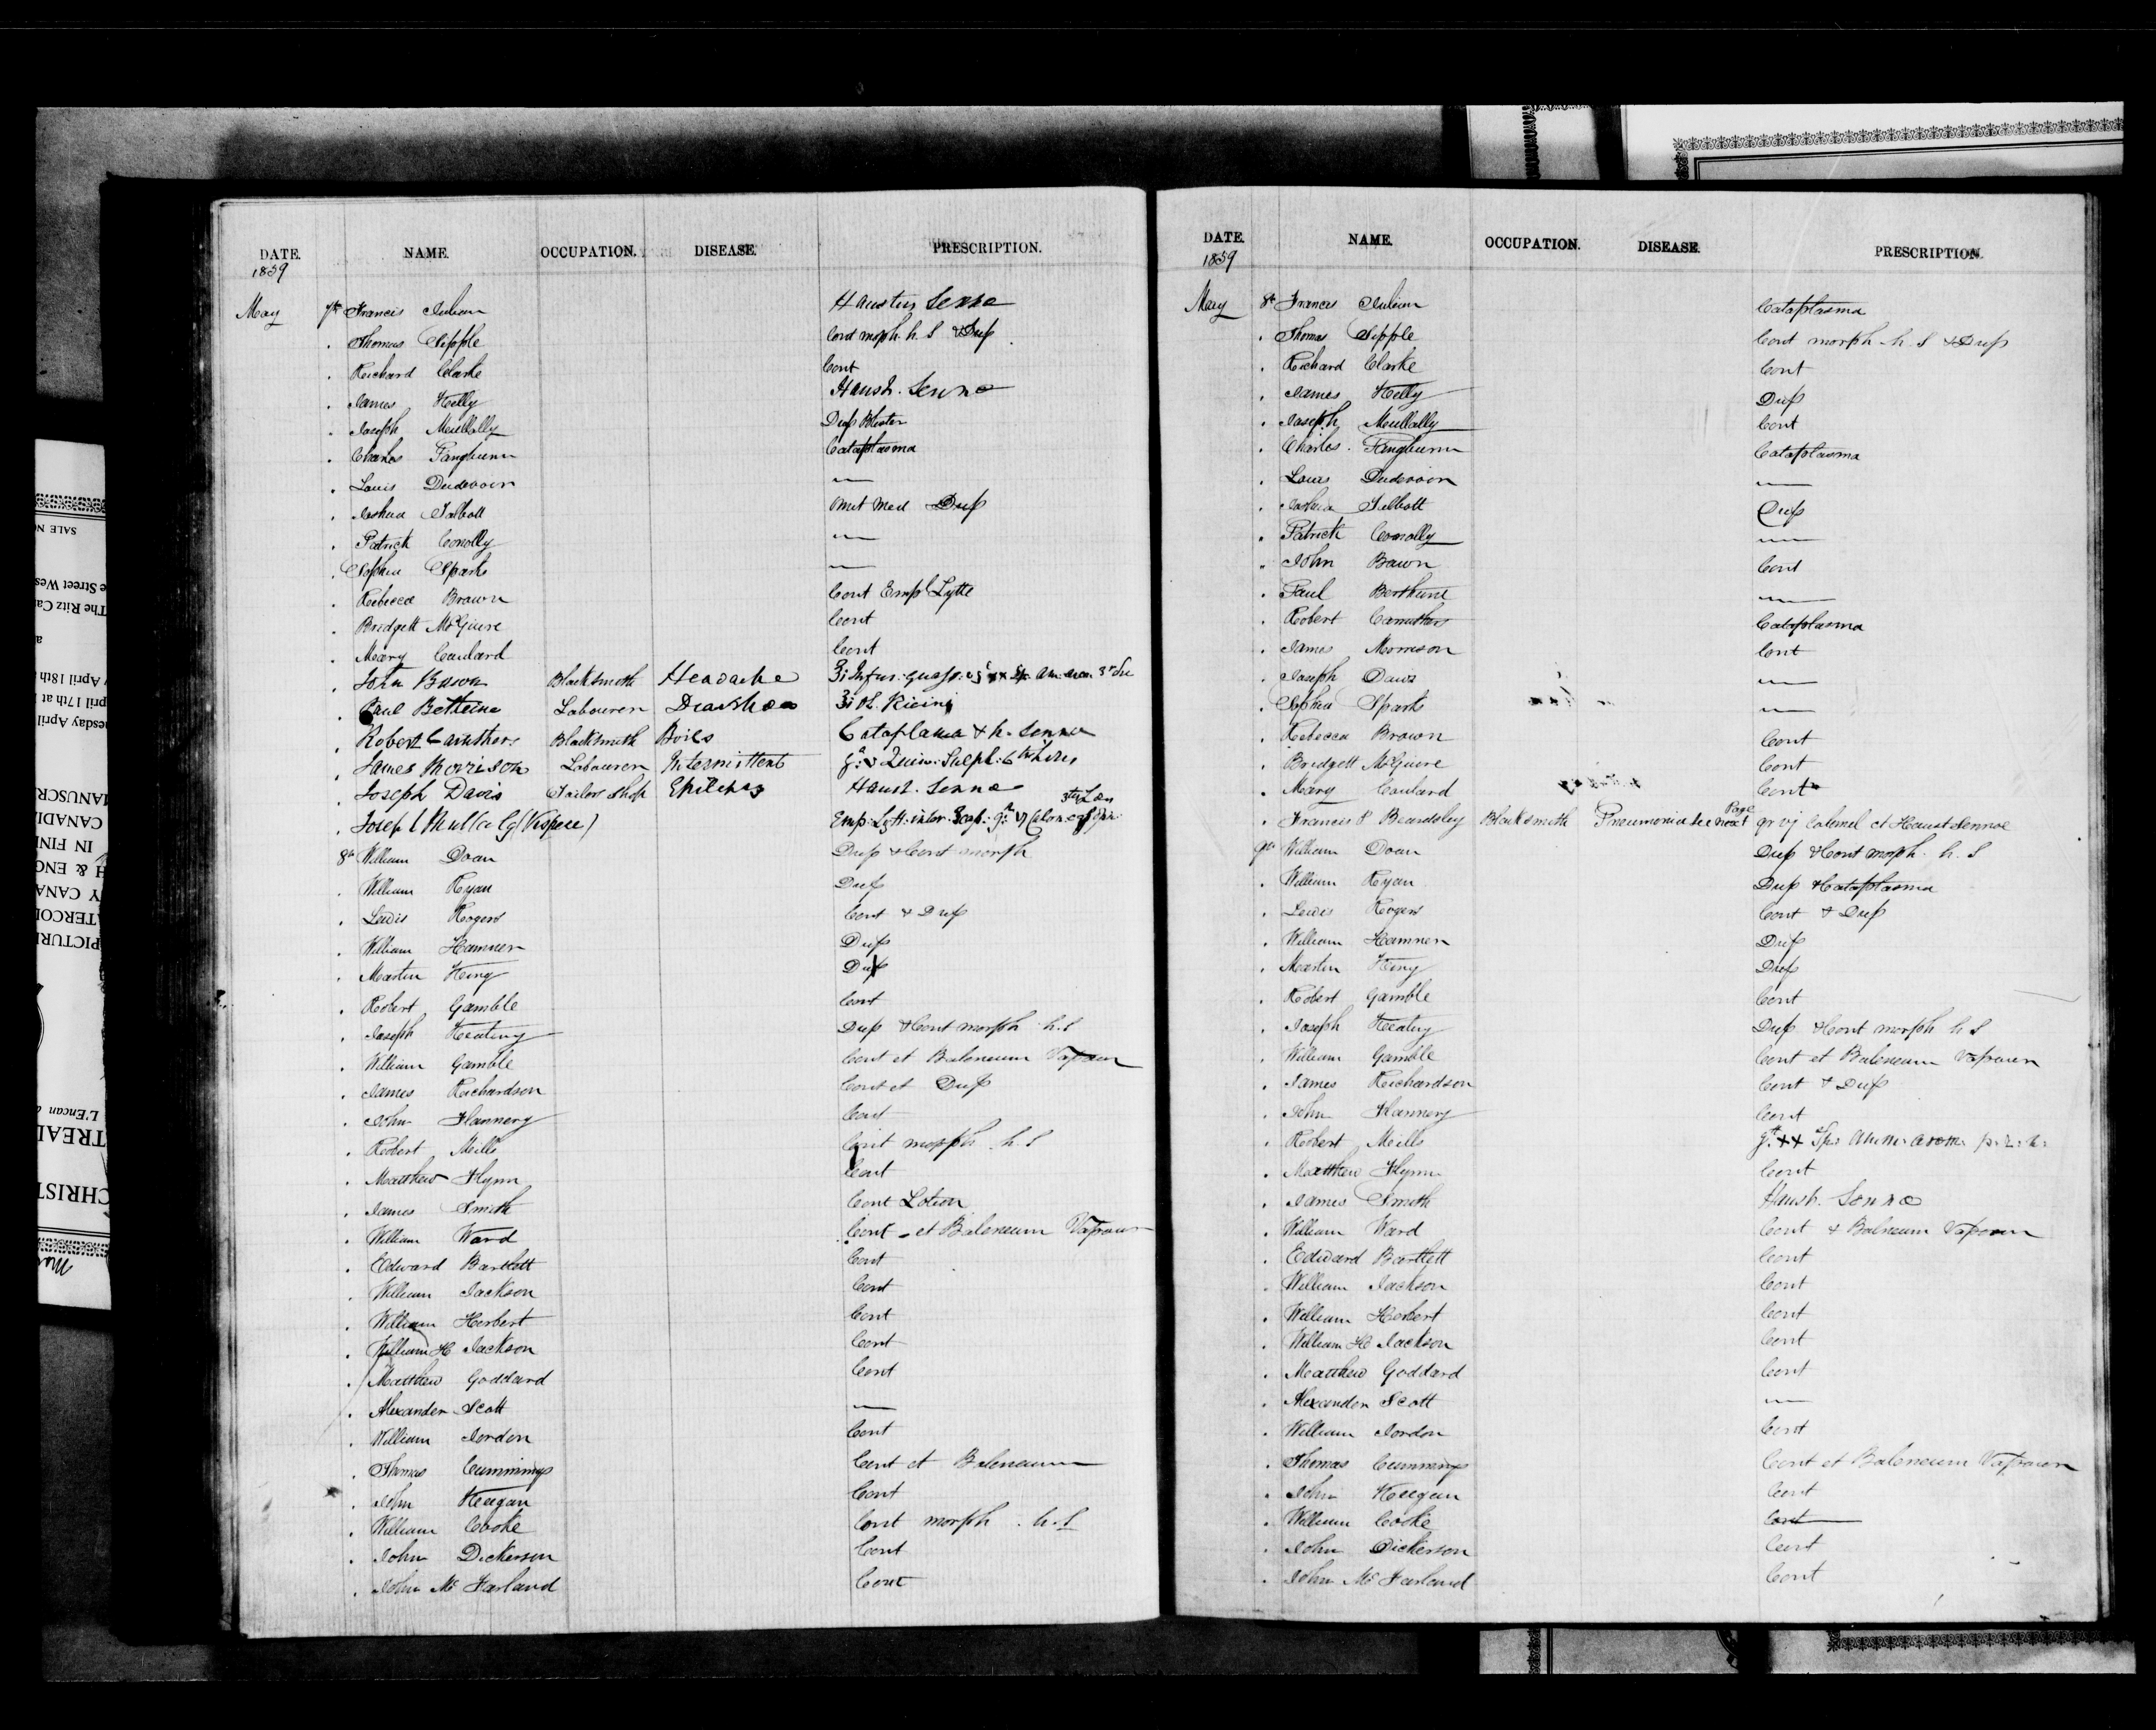 DATE. NAME. OCCUPATION. DISEASE. PRESCRIPTION.
1859
May 7th Francis Julian Haustus Senna
. Thomas Sipple Cont morph. h. S & Dup
. Richard Clarke Cont
. James Kelly Haust. Senna
. Joseph Mullally Dup Blister
. Charles Fangburn Cataplasma
. Louis Dudevoir —
. Joshua Talbott Omit Med Dup
. Patrick Conolly —
. Sophia Sparks —
. Rebecca Brown Cont Emp Lytte
. Bridgett McGuire Cont
. Mary Coulard Cont
. John Bawn Blacksmith Headache
. Paul Bethune Labourer Diarrhoea Ol. Ricini
. Robert Caruthers Blacksmith Boils Cataplasma & h. Senna
. James Morrison Labourer Intermittent Quin: Sulph: 6th horis
. Joseph Davis Tailor Shop Epilepsy Haust. Senna
. Joseph Mullally (Vespere) Emp: Lytt: inter. Scap:
8th William Doan Dup & Cont morph
. William Ryan Dup
. Lewis Rogers Cont & Dup
. William Hamner Dup
. Martin King Dup
. Robert Gamble Cont
. Joseph Keating Dup & Cont morph h. S
. William Gamble Cont et Balneum Vaporum
. James Richardson Cont et Dup
. John Flannery Cont
. Robert Mills Cont morph h. S
. Matthew Flynn Cont
. James Smith Cont Lotion
. William Ward Cont - et Balneum Vaporum
. Edward Bartlett Cont
. William Jackson Cont
. William Herbert Cont
. William H Jackson Cont
. Matthew Goddard Cont
. Alexander Scott —
. William Jordon Cont
. Thomas Cummings Cont et Balneum
. John Keegan Cont
. William Cooke Cont morph . h. S
. John Dickerson Cont
. John Mc Farland Cont
DATE. NAME. OCCUPATION. DISEASE. PRESCRIPTION.
1859
May 8th Francis Julian Cataplasma
. Thomas Sipple Cont morph h. S & Dup
. Richard Clarke Cont
. James Kelly Dup
. Joseph Mullally Cont
. Charles Fangburn Cataplasma
. Louis Dudevoir —
. Joshua Talbott Dup
. Patrick Conolly —
. John Bawn Cont
. Paul Berthune —
. Robert Caruthers Cataplasma
. James Morrison Cont
. Joseph Davis —
. Sophia Sparks —
. Rebecca Brown Cont
. Bridgett McGuire Cont
. Mary Coulard Cont
. Francis P Beardsley Blacksmith Pneumonia see next Page gr vj Calomel et Haust Sennae
9th William Doan Dup & Cont morph. h. S
. William Ryan Dup & Cataplasma
. Lewis Rogers Cont & Dup
. William Hamner Dup
. Martin King Dup
. Robert Gamble Cont
. Joseph Keating Dup & Cont morph h S
. William Gamble Cont et Balneum Vaporum
. James Richardson Cont & Dup
. John Flannery Cont
. Robert Mills gtt. xx Sp: Amm: arom:
. Matthew Flynn Cont
. James Smith Haust. Senna
. William Ward Cont & Balneum Vaporum
. Edward Bartlett Cont
. William Jackson Cont
. William Herbert Cont
. William H Jackson Cont
. Matthew Goddard Cont
. Alexander Scott —
. William Jordon Cont
. Thomas Cummings Cont et Balneum Vaporum
. John Keegan Cont
. William Cooke Cont
. John Dickerson Cont
. John Mc Farland Cont
SALE NO
e Street Wes
The Ritz Ca
a
y April 18th
pril 17th at
nesday April
MANUSCR
CANADI
IN FIN
H & ENG
Y CANA
ATERCOL
PICTURE
L'Encan
TREAL
CHRIST